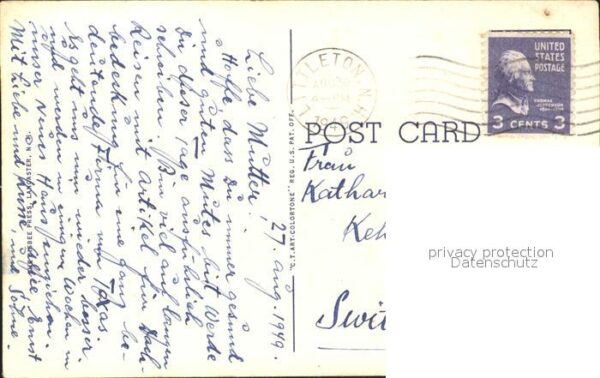 27 Aug. 1949.
Liebe Mutter,
Hoffe dass Du immer gesund
und guten Mutes bist. Werde
Dir dieser Tage ausführlich
schreiben. Bin viel auf langen
Reisen mit Artikel für Dach-
bedeckung für eine ganz be-
deutende Firma von Texas.
Es geht uns nun wieder besser.
und werden in einigen Wochen in
unser neues Haus einziehen.
Mit Liebe und Küsse Ernst
und Söhne.
LITTLETON N.H.
1949
UNITED
STATES
POSTAGE
THOMAS
JEFFERSON
3 CENTS 3
POST CARD
Frau
Kathar
Keh
Swit
privacy protection
Datenschutz
"C.T. ART-COLORTONE" REG. U.S. PAT. OFF.
PRESS, LANCASTER, N.H.